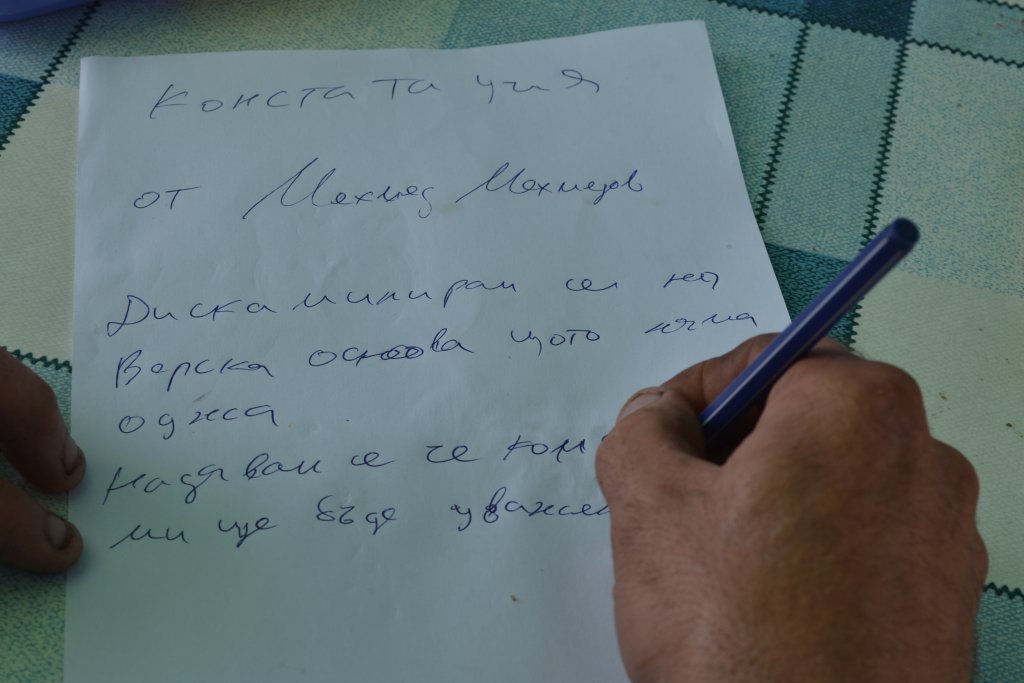 Констатация
от Мехмед Мехмедов
Дискаминиран се на
верска основа щото няма
оджа
Надявам се че
ми ще бъде